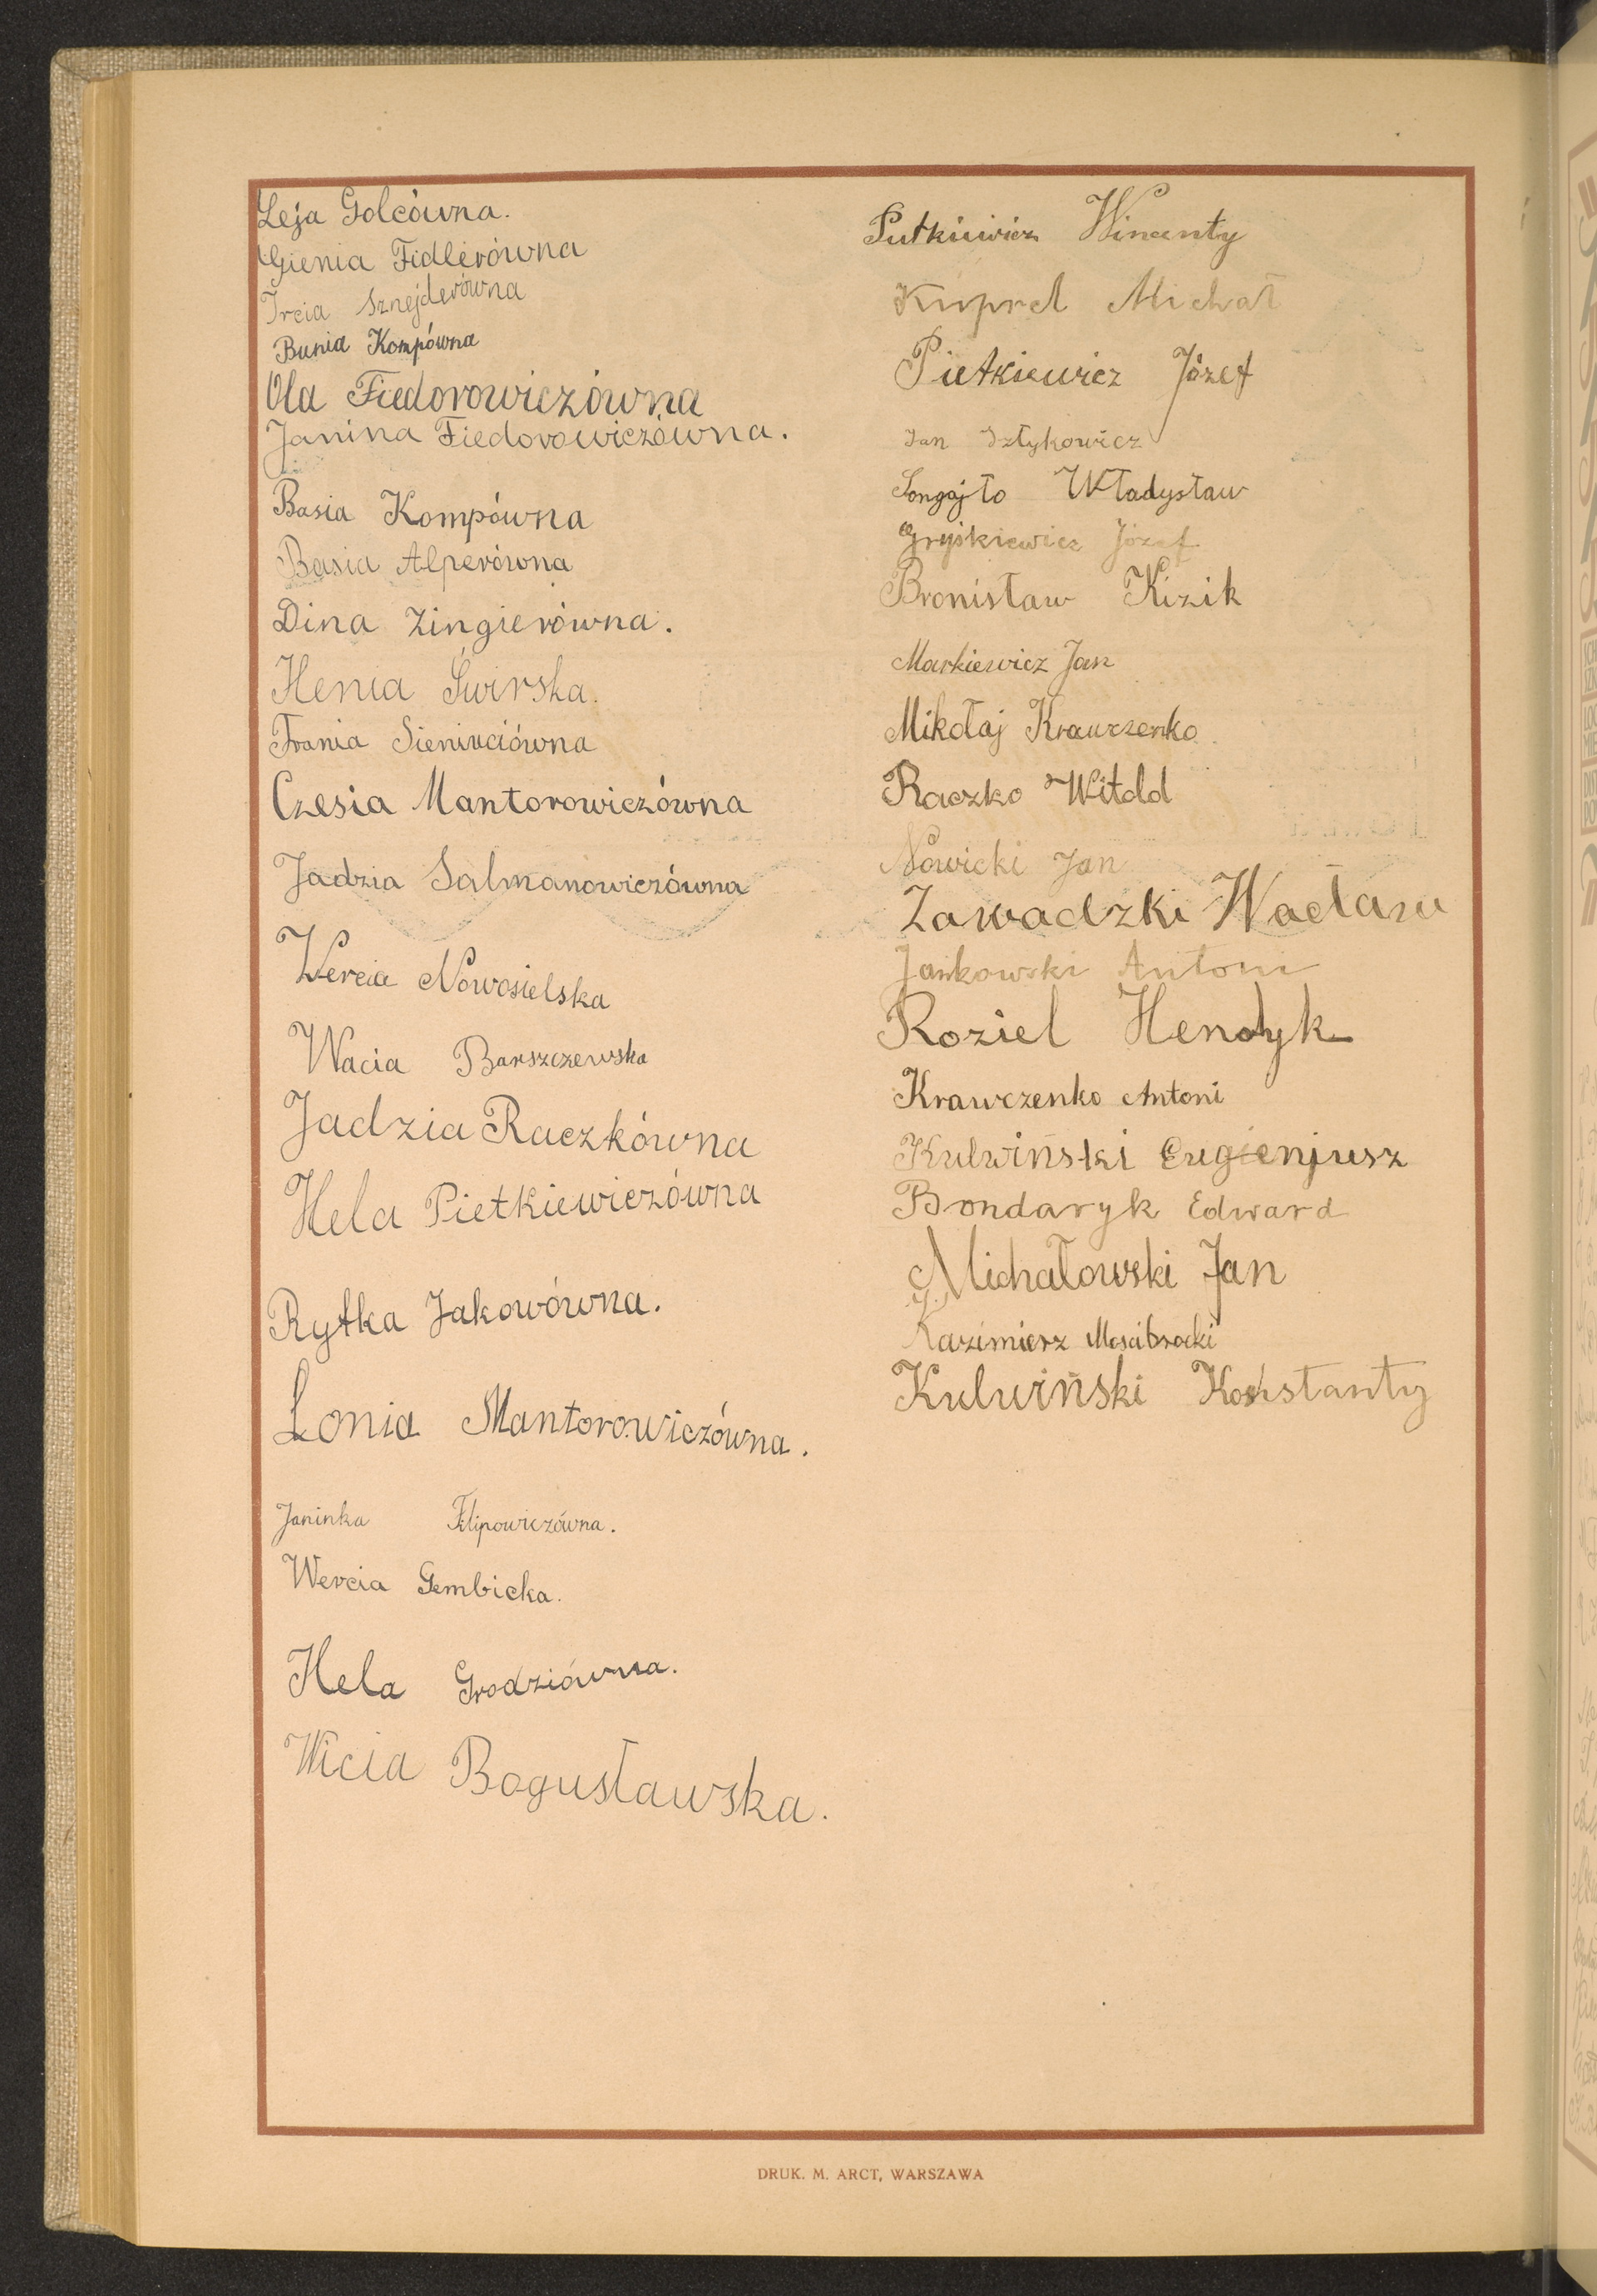 Leja Golcówna.
Gienia Fidlerówna
Ircia Sznejderówna
Bunia Kompówna
Ola Fiedorowiczówna
Janina Fiedorowiczówna.
Basia Kompówna
Basia Alperówna
Dina Zingierówna.
Henia Świrska.
Frania Sieniuciówna
Czesia Mantorowiczówna
Jadzia Salmanowiczówna
Wercia Nowosielska
Wacia Barszczewska
Jadzia Raczkówna
Hela Pietkiewiczówna
Rytka Jakowówna.
Lonia Mantorowiczówna.
Janinka Filipowiczówna.
Wercia Gembicka.
Hela Grodziówna.
Wicia Bogusławska.
Putkiewicz Wincenty
Kuprel Michał
Pietkiewicz Józef
Jan Iztykowicz
Songajło Władysław
Gryśkiewicz Józef
Bronisław Kizik
Markiewicz Jan
Mikołaj Krawczenko
Raczko Witold
Nowicki Jan
Zawadzki Wacław
Jankowski Antoni
Roziel Hendyk
Krawczenko Antoni
Kulwiński Eugienjusz
Bondaryk Edward
Michałowski Jan
Kazimierz Mościbrocki
Kulwiński Konstanty
DRUK. M. ARCT, WARSZAWA